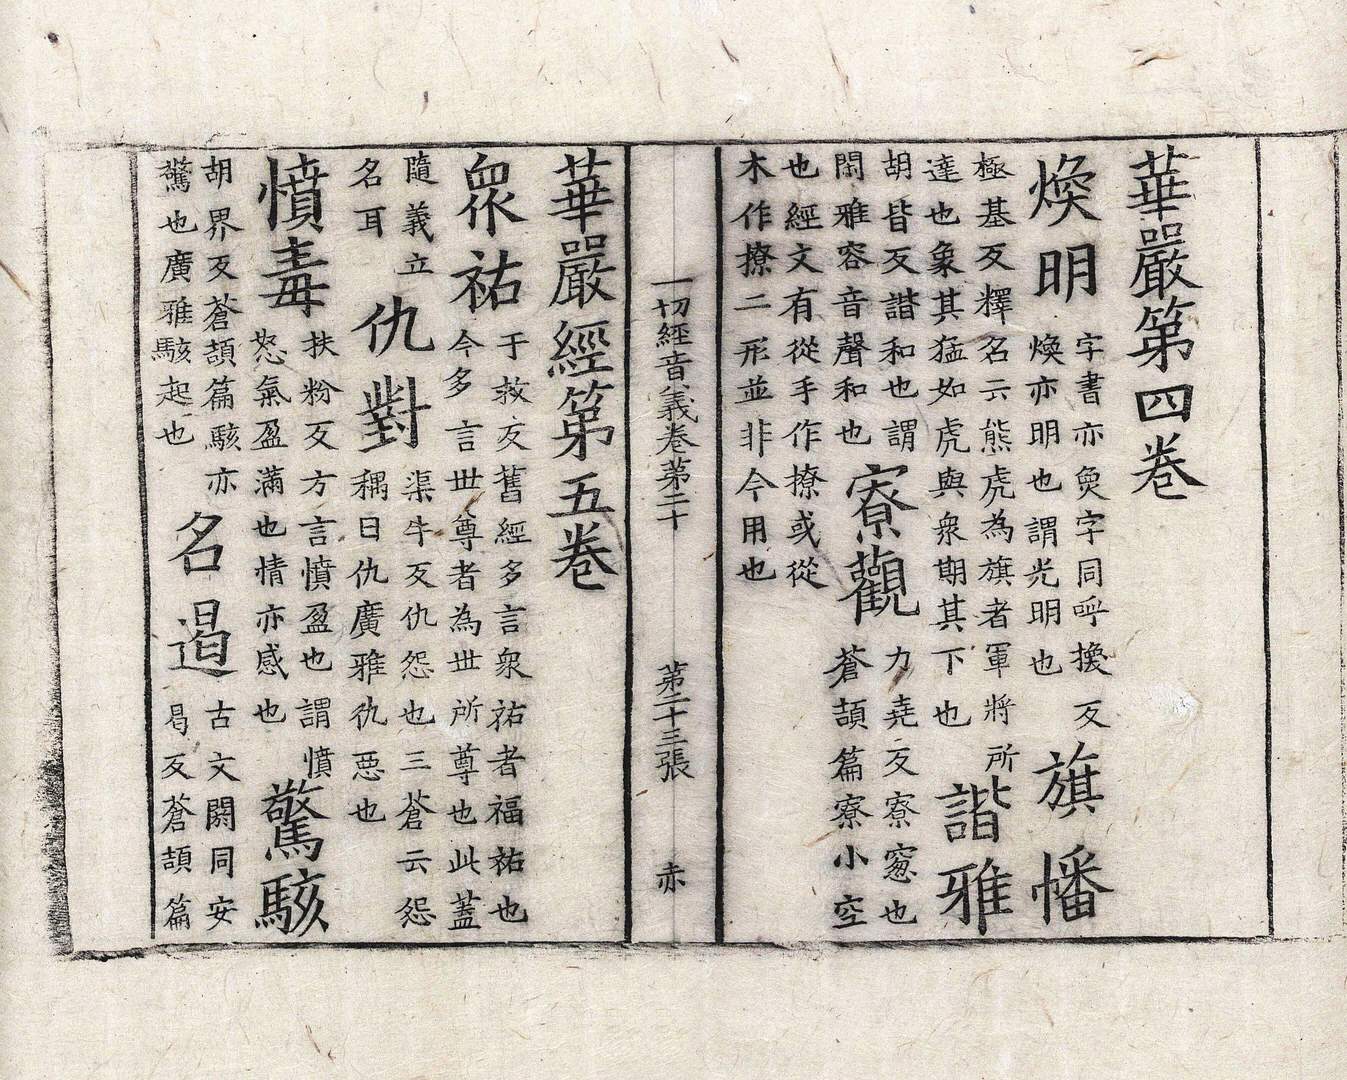 華嚴第四卷
煥明
字書亦奐字同呼換反
煥亦明也謂光明也
旗幡
極基反釋名云熊虎為旗者軍將所
達也象其猛如虎與衆期其下也
諧雅
胡皆反諧和也謂
閑雅容音聲和也
寮觀
力堯反寮窓也
蒼頡篇寮小空
也經文有從手作撩或從
木作撩二形並非今用也
一切經音義卷第二十 第二十三張 赤
華嚴經第五卷
衆祐
于救反舊經多言衆祐者福祐也
今多言世尊者為世所尊也此蓋
隨義立
名耳
仇對
渠牛反仇怨也三蒼云怨
耦曰仇廣雅仇惡也
憤毒
扶粉反方言憤盈也謂憤
怒氣盈滿也情亦感也
驚駭
胡界反蒼頡篇駭亦
驚也廣雅駭起也
名遏
古文閼同安
曷反蒼頡篇